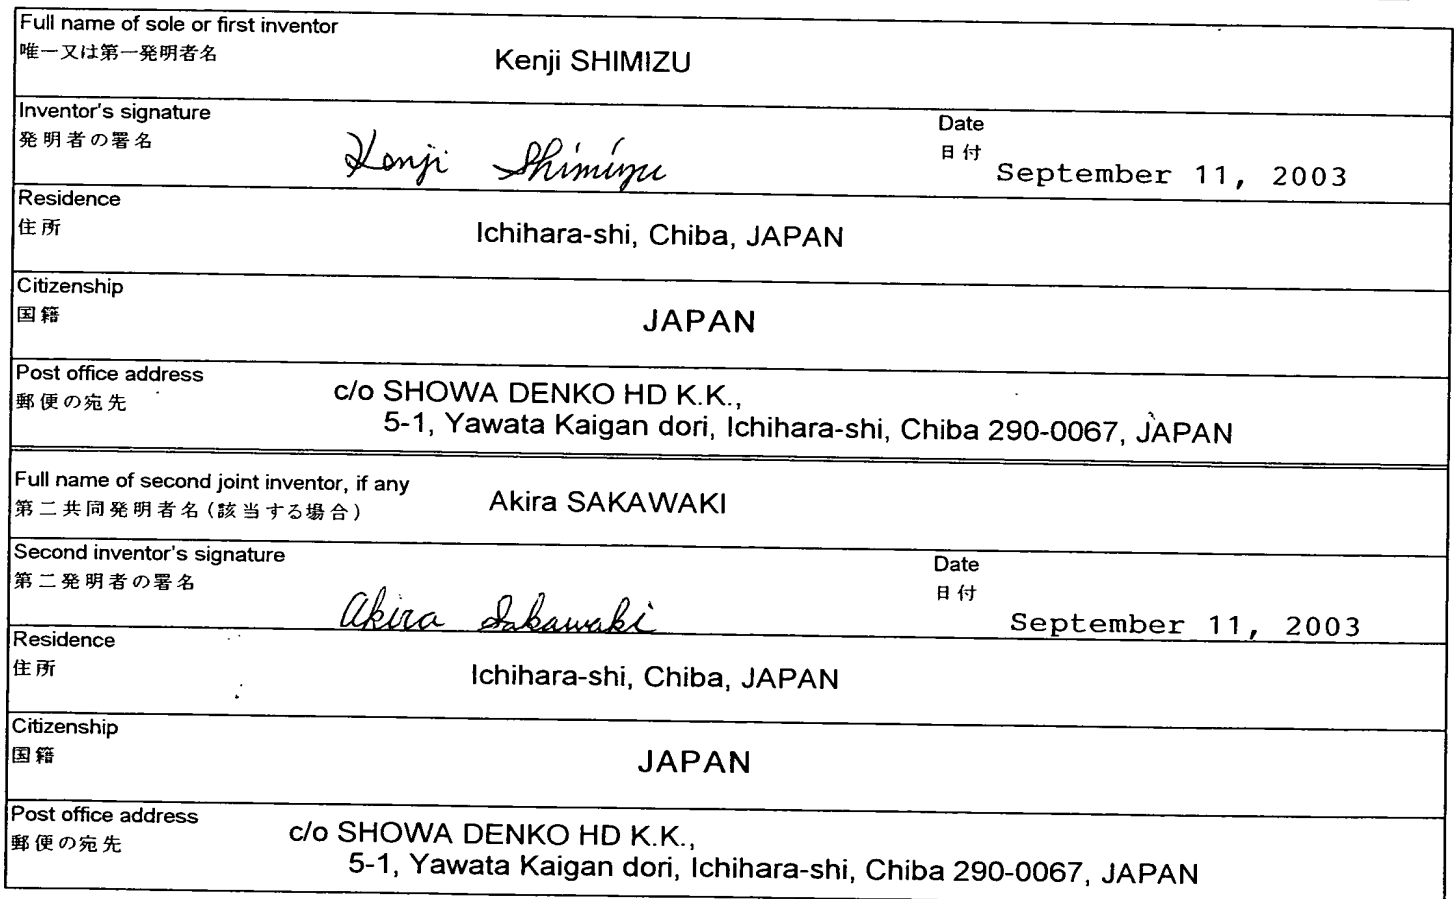 Full name of sole or first inventor
唯一又は第一発明者名
Kenji SHIMIZU
Inventor's signature
発明者の署名
Kenji Shimizu
Date
日付
September 11, 2003
Residence
住所
Ichihara-shi, Chiba, JAPAN
Citizenship
国籍
JAPAN
Post office address
郵便の宛先
c/o SHOWA DENKO HD K.K.,
5-1, Yawata Kaigan dori, Ichihara-shi, Chiba 290-0067, JAPAN
Full name of second joint inventor, if any
第二共同発明者名(該当する場合)
Akira SAKAWAKI
Second inventor's signature
第二発明者の署名
Akira Sakawaki
Date
日付
September 11, 2003
Residence
住所
Ichihara-shi, Chiba, JAPAN
Citizenship
国籍
JAPAN
Post office address
郵便の宛先
c/o SHOWA DENKO HD K.K.,
5-1, Yawata Kaigan dori, Ichihara-shi, Chiba 290-0067, JAPAN